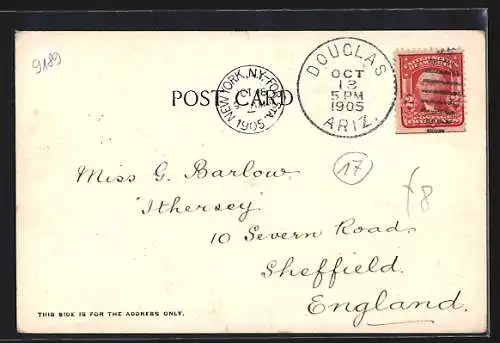 9189
POST CARD
NEW YORK, N.Y.
1905
DOUGLAS
OCT
13
5 PM
1905
ARIZ.
17
Miss G. Barlow.
Ithersey.
10 Severn Road.
Sheffield.
England.
THIS SIDE IS FOR THE ADDRESS ONLY.